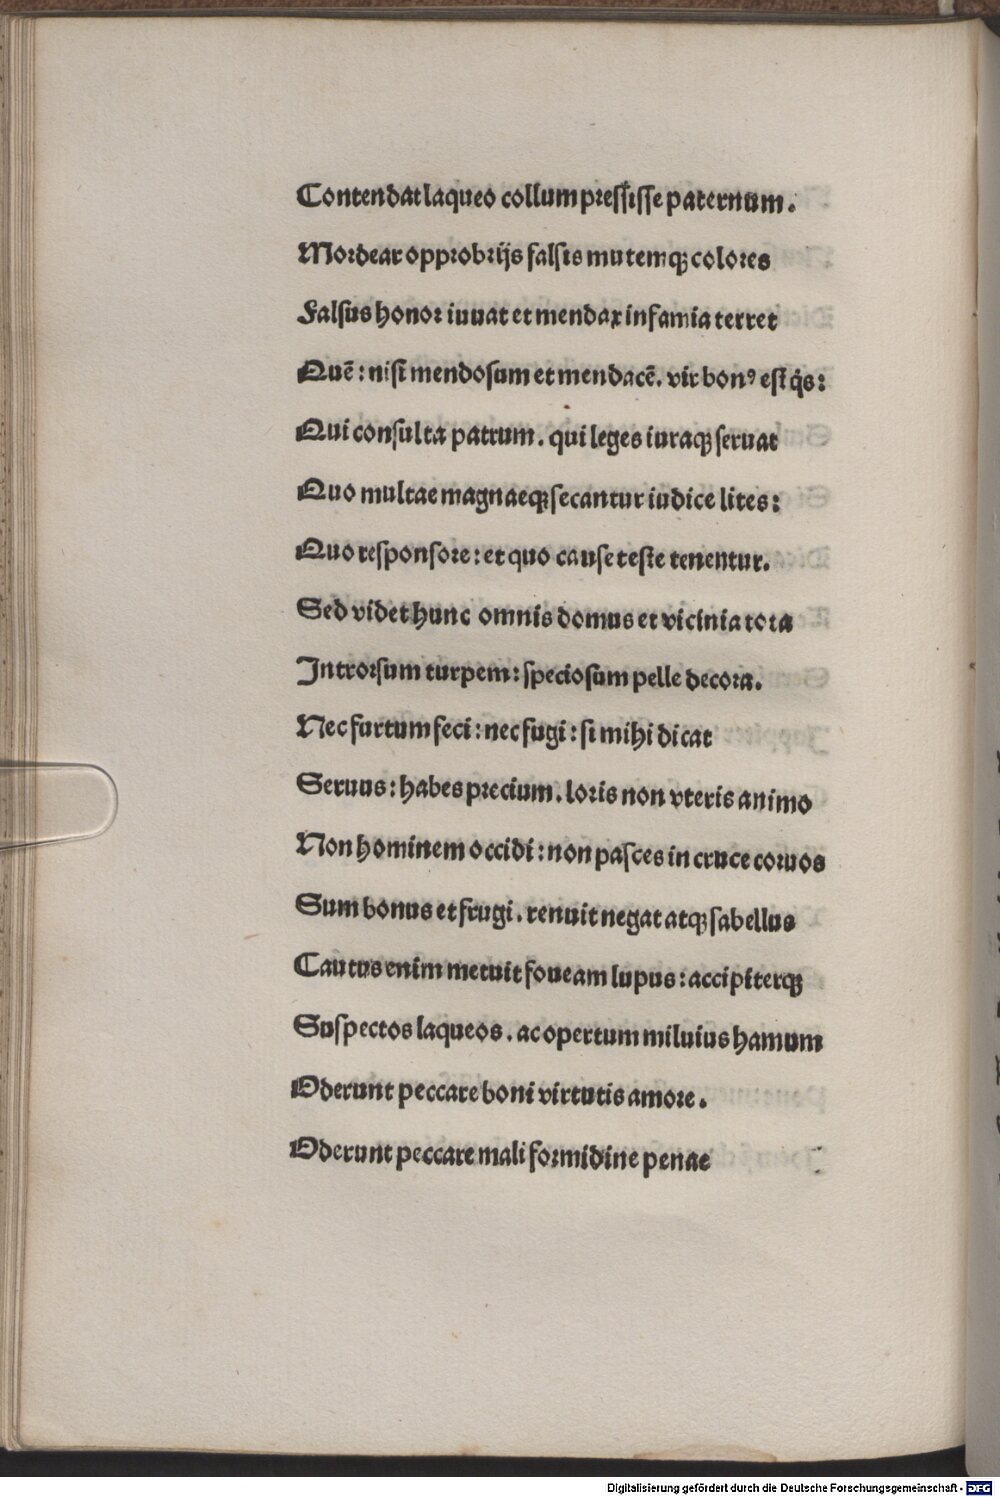 Contendat laqueo collum pressisse paternum.
Mordear opprobrijs falsis mutemqꝫ colores
Falsus honor iuuat et mendax infamia terret
Quē: nisi mendosum et mendacē. vir bonꝰ est q̇s:
Qui consulta patrum. qui leges iuraqꝫ seruat
Quo multae magnaeqꝫ secantur iudice lites:
Quo responsore: et quo cause teste tenentur.
Sed videt hunc omnis domus et vicinia tota
Introrsum turpem: speciosum pelle decora.
Nec furtum feci: nec fugi: si mihi dicat
Seruus: habes precium. loris non vteris animo
Non hominem occidi: non pasces in cruce coruos
Sum bonus et frugi. renuit negat atqꝫ sabellus
Cautus enim metuit foueam lupus: accipiterqꝫ
Suspectos laqueos. ac opertum miluius hamum
Oderunt peccare boni virtutis amore.
Oderunt peccare mali formidine penae
Digitalisierung gefördert durch die Deutsche Forschungsgemeinschaft - DFG